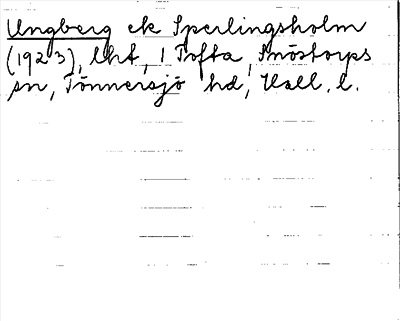 Ungberg ek Sperlingsholm
(1923), lht, 1 Tofta, Snöstorps
sn, Tönnersjö hd, Hall. l.